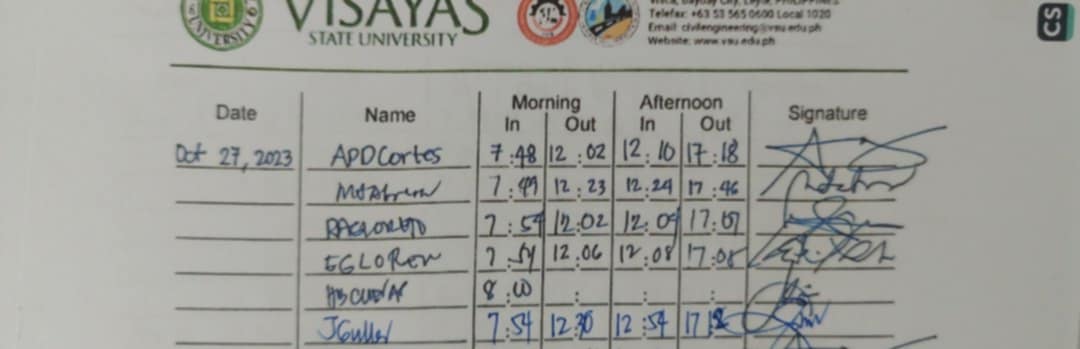 VISAYAS
STATE UNIVERSITY
UNIVERSITY
Telefax: +63 53 565 0600 Local 1020
Email: civilengineering@vsu.edu.ph
Website: www.vsu.edu.ph
CS
Date Name Morning Afternoon Signature
In Out In Out
Oct 27, 2023 APDCortes 7:48 12:02 12:10 17:18
7:49 12:23 12:24 17:46
7:54 12:02 12:09 17:07
EGLOReN 7:54 12:06 12:08 17:08
8:00 : : :
JGuller 7:54 12:30 12:54 17